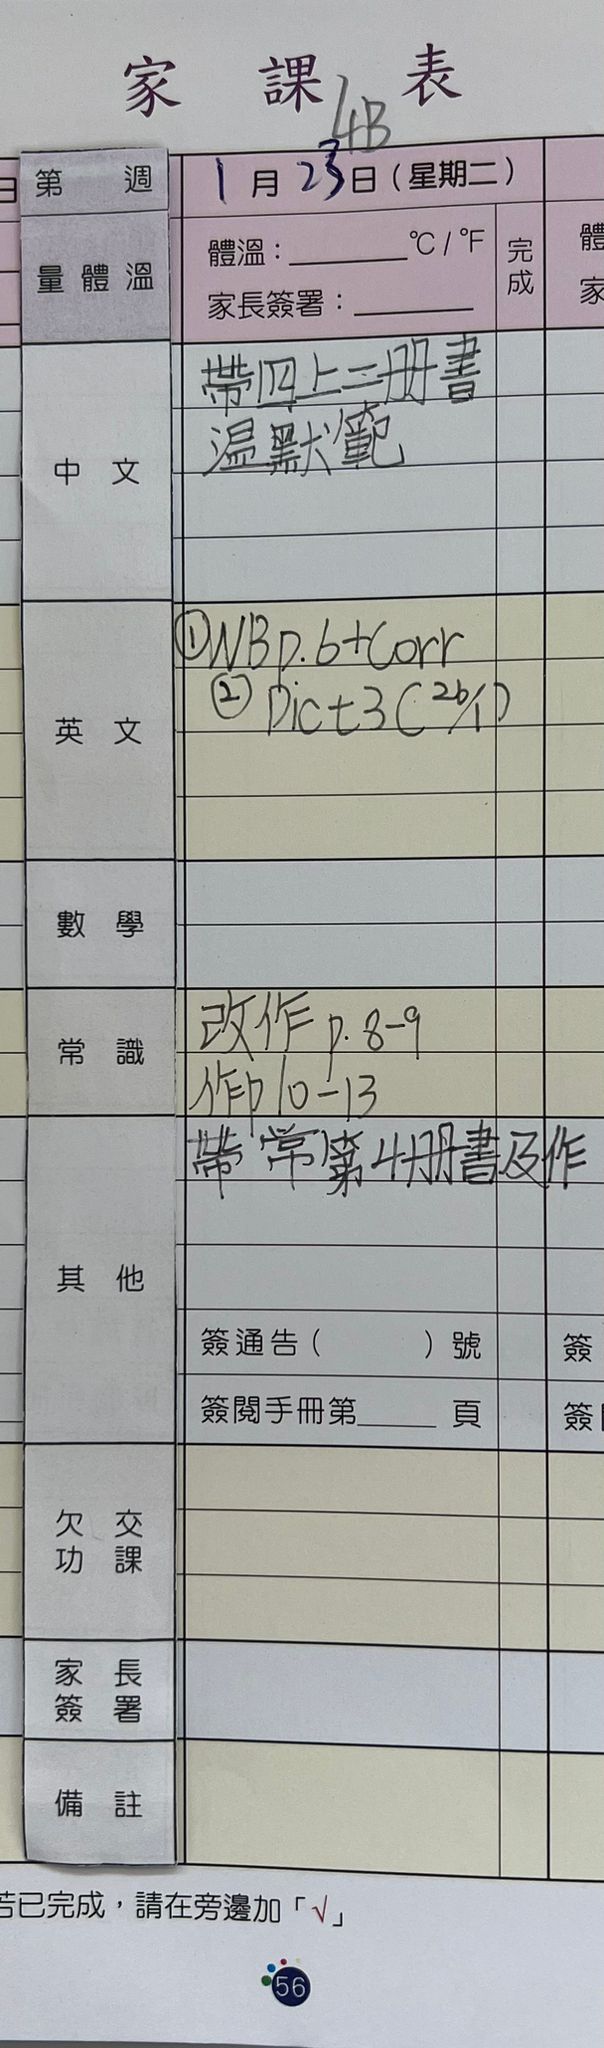 家課表
4B
第 週
1月23日(星期二)
量體溫
體溫：______°C/°F
家長簽署：______
完成
中文
帶四上二冊書
溫默範
英文
①WB p.6+Corr
②Dict 3(26/1)
數學
常識
改作p.8-9
作p10-13
其他
帶常第4冊書及作
簽通告( )號
簽閱手冊第____頁
欠交功課
家長簽署
備註
若已完成，請在旁邊加「√」
56